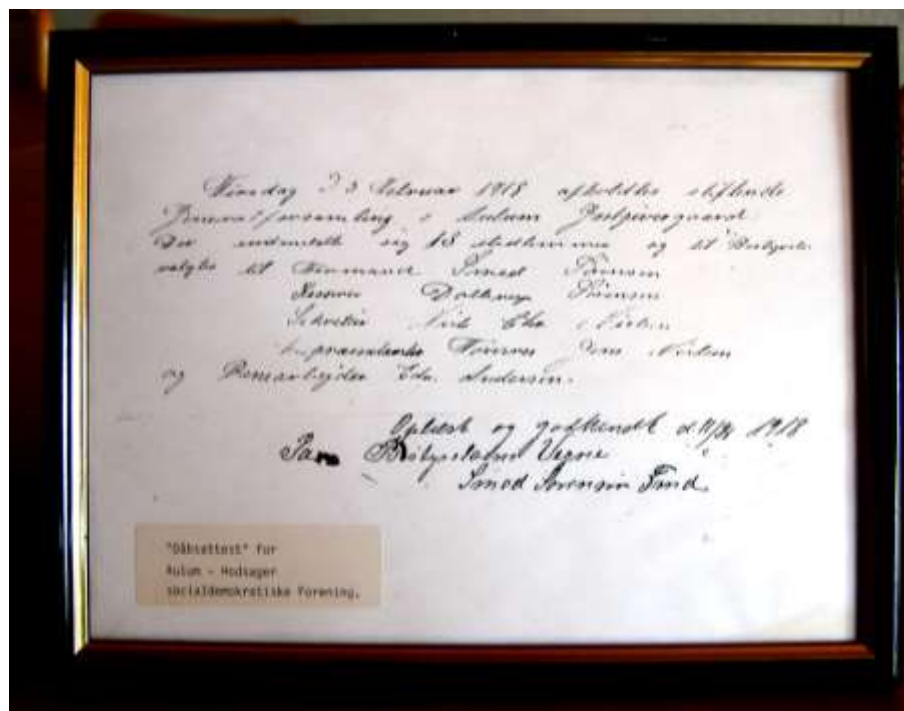 dag 23 Februar 1918 afholdtes stiftende
Generalforsamling i Aulum Gæstgivergaard
Der indmeldte sig 18 Medlemmer og til Bestyrelse
valgtes til Formand Smed Sørensen
Kasserer Sørensen
Sekretær Niels Chr Nielsen
Jens Nielsen
og Andersen.
Oplæst og godkendt d. 1918
Paa Bestyrelsens Vegne
Smed Sørensen Fmd.
"Dåbsattest" for
Aulum - Hodsager
socialdemokratiske Forening.